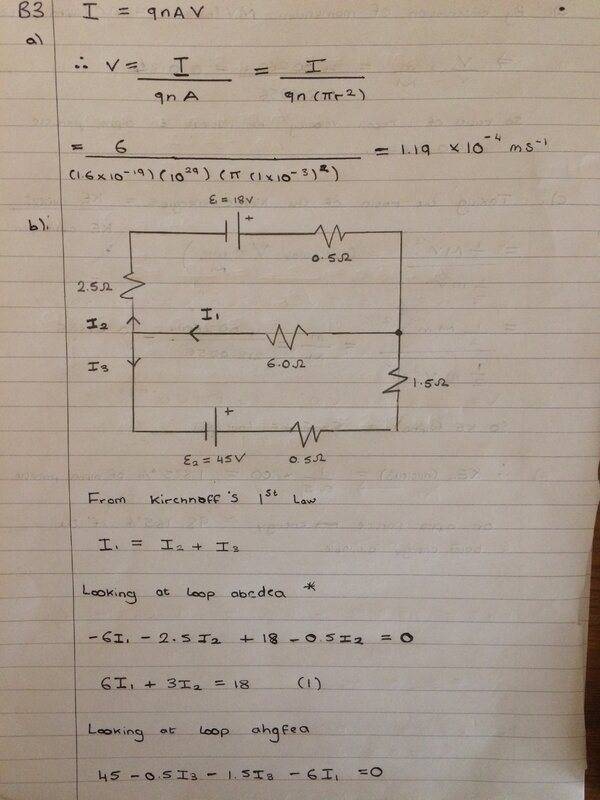 B3 I = qnAV
a)
∴ V = I / qnA = I / qn(πr²)
= 6 / (1.6x10⁻¹⁹)(10²⁹)(π(1x10⁻³)²) = 1.19 x10⁻⁴ ms⁻¹
b).
ε = 18V
+
0.5Ω
2.5Ω
I₁
I₂
6.0Ω
I₃
1.5Ω
+
ε₂ = 45V
0.5Ω
From Kirchhoff's 1st Law
I₁ = I₂ + I₃
Looking at loop abcdea *
-6I₁ - 2.5I₂ + 18 - 0.5I₂ = 0
6I₁ + 3I₂ = 18 (1)
Looking at loop ahgfea
45 - 0.5I₃ - 1.5I₃ - 6I₁ = 0